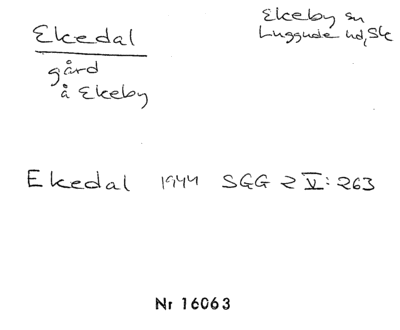 Ekedal
gård
å Ekeby
Ekeby sn
Luggude hd, Sk
Ekedal 1944 SGG 2 V: 263
Nr 16063